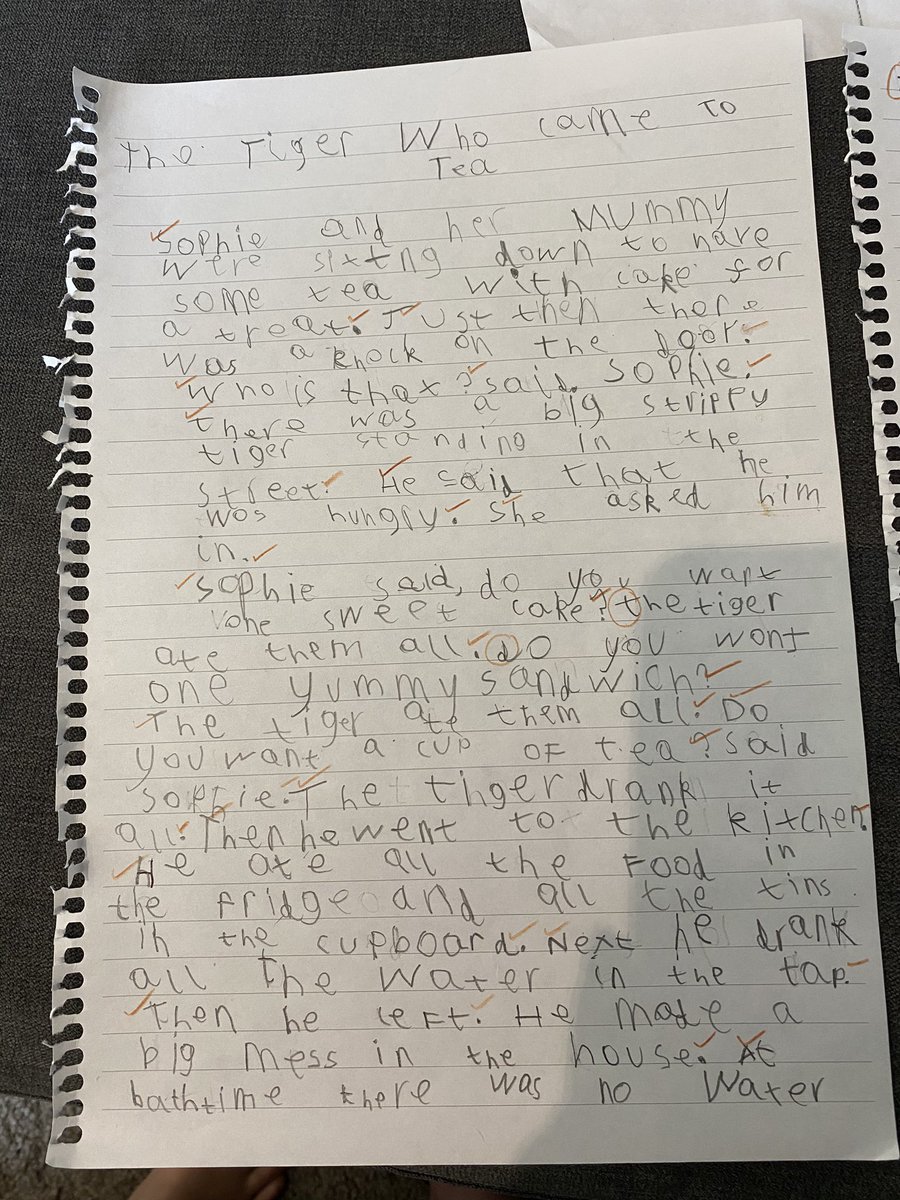 The Tiger Who came to
Tea
Sophie and her Mummy
were sixtng down to have
some tea with cake for
a treat. Just then there
was a knock on the door.
Who is that? said Sophie.
There was a big strippy
tiger standing in the
street. He said that he
was hungry. She asked him
in.
Sophie said, do you want
one sweet cake? the tiger
ate them all. do you wont
one yummy sandwich?
The tiger ate them all. Do
you want a cup of tea? said
Sophie. The thger drank it
all. Then he went to the kitchen.
He ate all the Food in
the fridge and all the tins
in the cupboard. Next he drank
all the water in the tap.
Then he left. He made a
big mess in the house. At
bathtime there was no Water